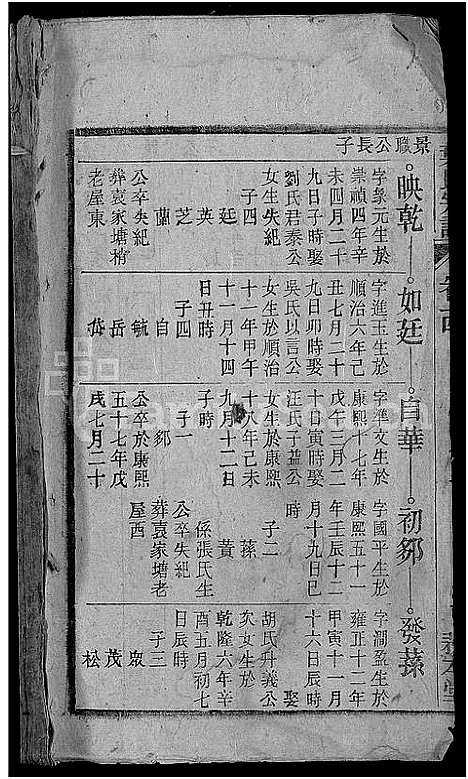 景職公長子
映乾——如廷——自華——初鄒——發蓀
字象元生於
崇禎四年辛
未四月二十
九日子時娶
劉氏君泰公
女生失紀
子四
廷
英
芝
蘭
公卒失紀
葬袁家塘梢
老屋東
字進玉生於
順治六年己
丑七月二十
九日卯時娶
吳氏以言公
女生於順治
十一年甲午
十一月十四
日丑時
子四
自
毓
岳
岱
字準文生於
康熙十七年
戊午三月二
十日寅時娶
汪氏子益公
女生於康熙
十八年己未
九月十二日
子時
子一
鄒
公卒於康熙
五十七年戊
戌七月二十
字國平生於
康熙五十一
年壬辰十二
月十九日巳
時
子二
蓀
黃
係張氏生
公卒失紀
葬袁家塘老
屋西
字潤盈生於
雍正十二年
甲寅十一月
十六日辰時
娶
胡氏丹義公
次女生於
乾隆六年辛
酉五月初七
日辰時
子三
眾
茂
松